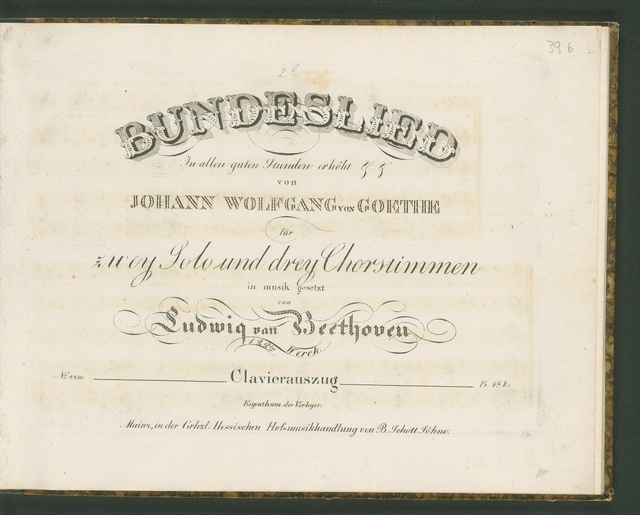 39 b
BUNDESLIED
In allen guten Stunden erhöht
von
JOHANN WOLFGANG von GOETHE
für
zwey Solo und drey Chorstimmen
in musik gesetzt
von
Ludwig van Beethoven
122tes Werck.
Clavierauszug
Eigenthum der Verleger.
Mainz, in der Grhzl. Hessischen Hofmusikhandlung von B. Schott Söhne.